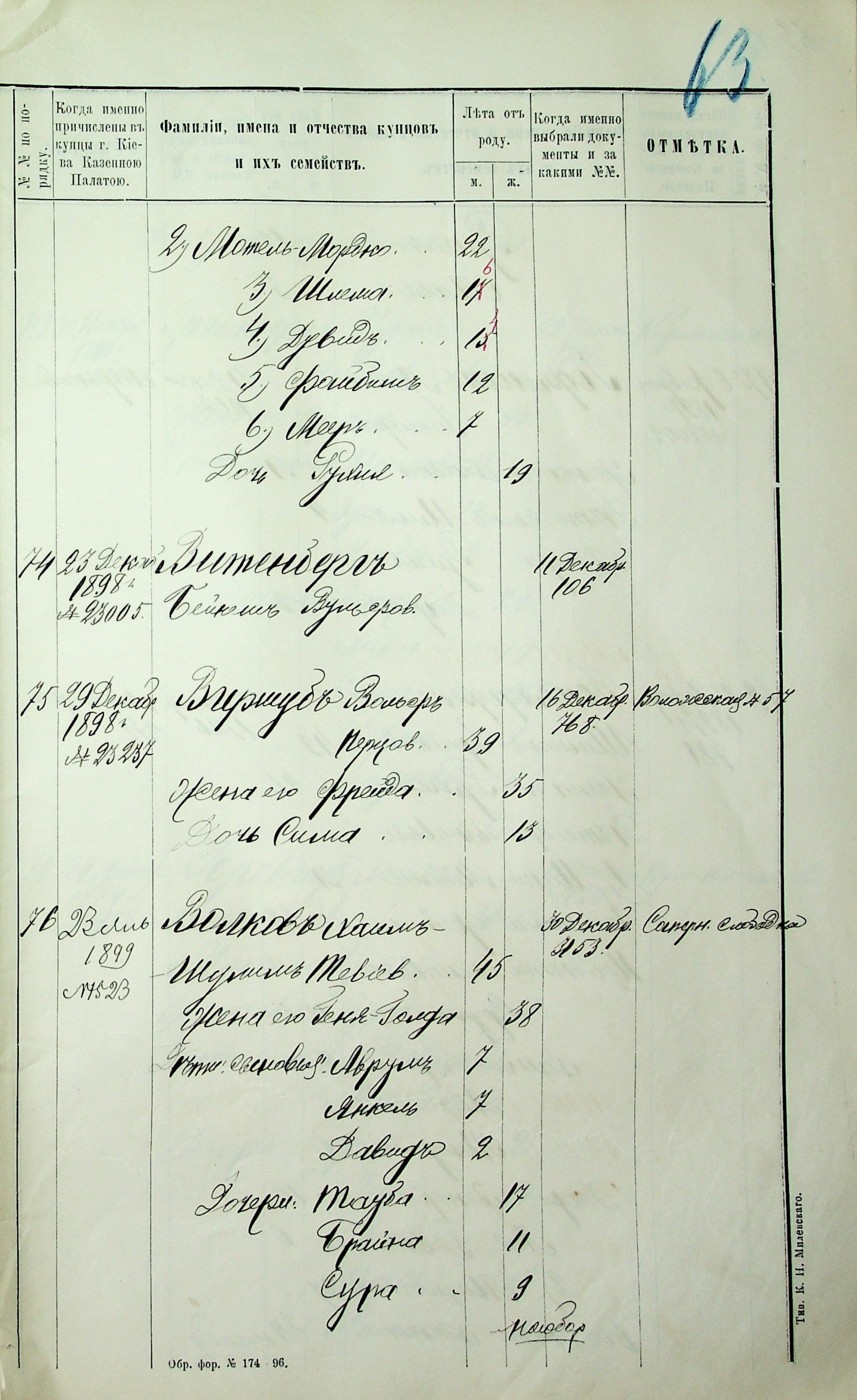 63
№ № по по-
рядку.
Когда именно
причислены въ
купцы г. Кіе-
ва Казенною
Палатою.
Фамиліи, имена и отчества купцовъ
и ихъ семействъ.
Лѣта отъ
роду.
м. ж.
Когда именно
выбрали доку-
менты и за
какими №№.
ОТМѢТКА.
2) Мотель-Мордко. 22
3) Шлема. 17 6
4) Дувидъ. 15 4
5) Файбишъ 12
6) Мееръ. 7
Дочь Рухля 19
74 23 Декаб Витенбергъ 11 Декабр.
1898 г. 106
№ 23005. Бейнишъ Вульфов.
75 29 Декабр Виршубъ Вольфъ 16 Декабр. Волошская № 57
1898 г. 768.
№ 23237 Перцов. 39
Жена его Фрейда. 35
Дочь Сима 13
76 Волковъ Хаимъ- 30 Декабр. Саперн. слободка
1899 3153.
№ 1523 Шулимъ Тевіев. 45
Жена его Геня-Голда 38
Дѣти: сыновья: Аврумъ 7
Янкель 7
Давидъ 2
Дочери: Тауба 17
Брайна 11
Сура 9
Обр. фор. № 174 96.
Тип. К. Н. Милевскаго.